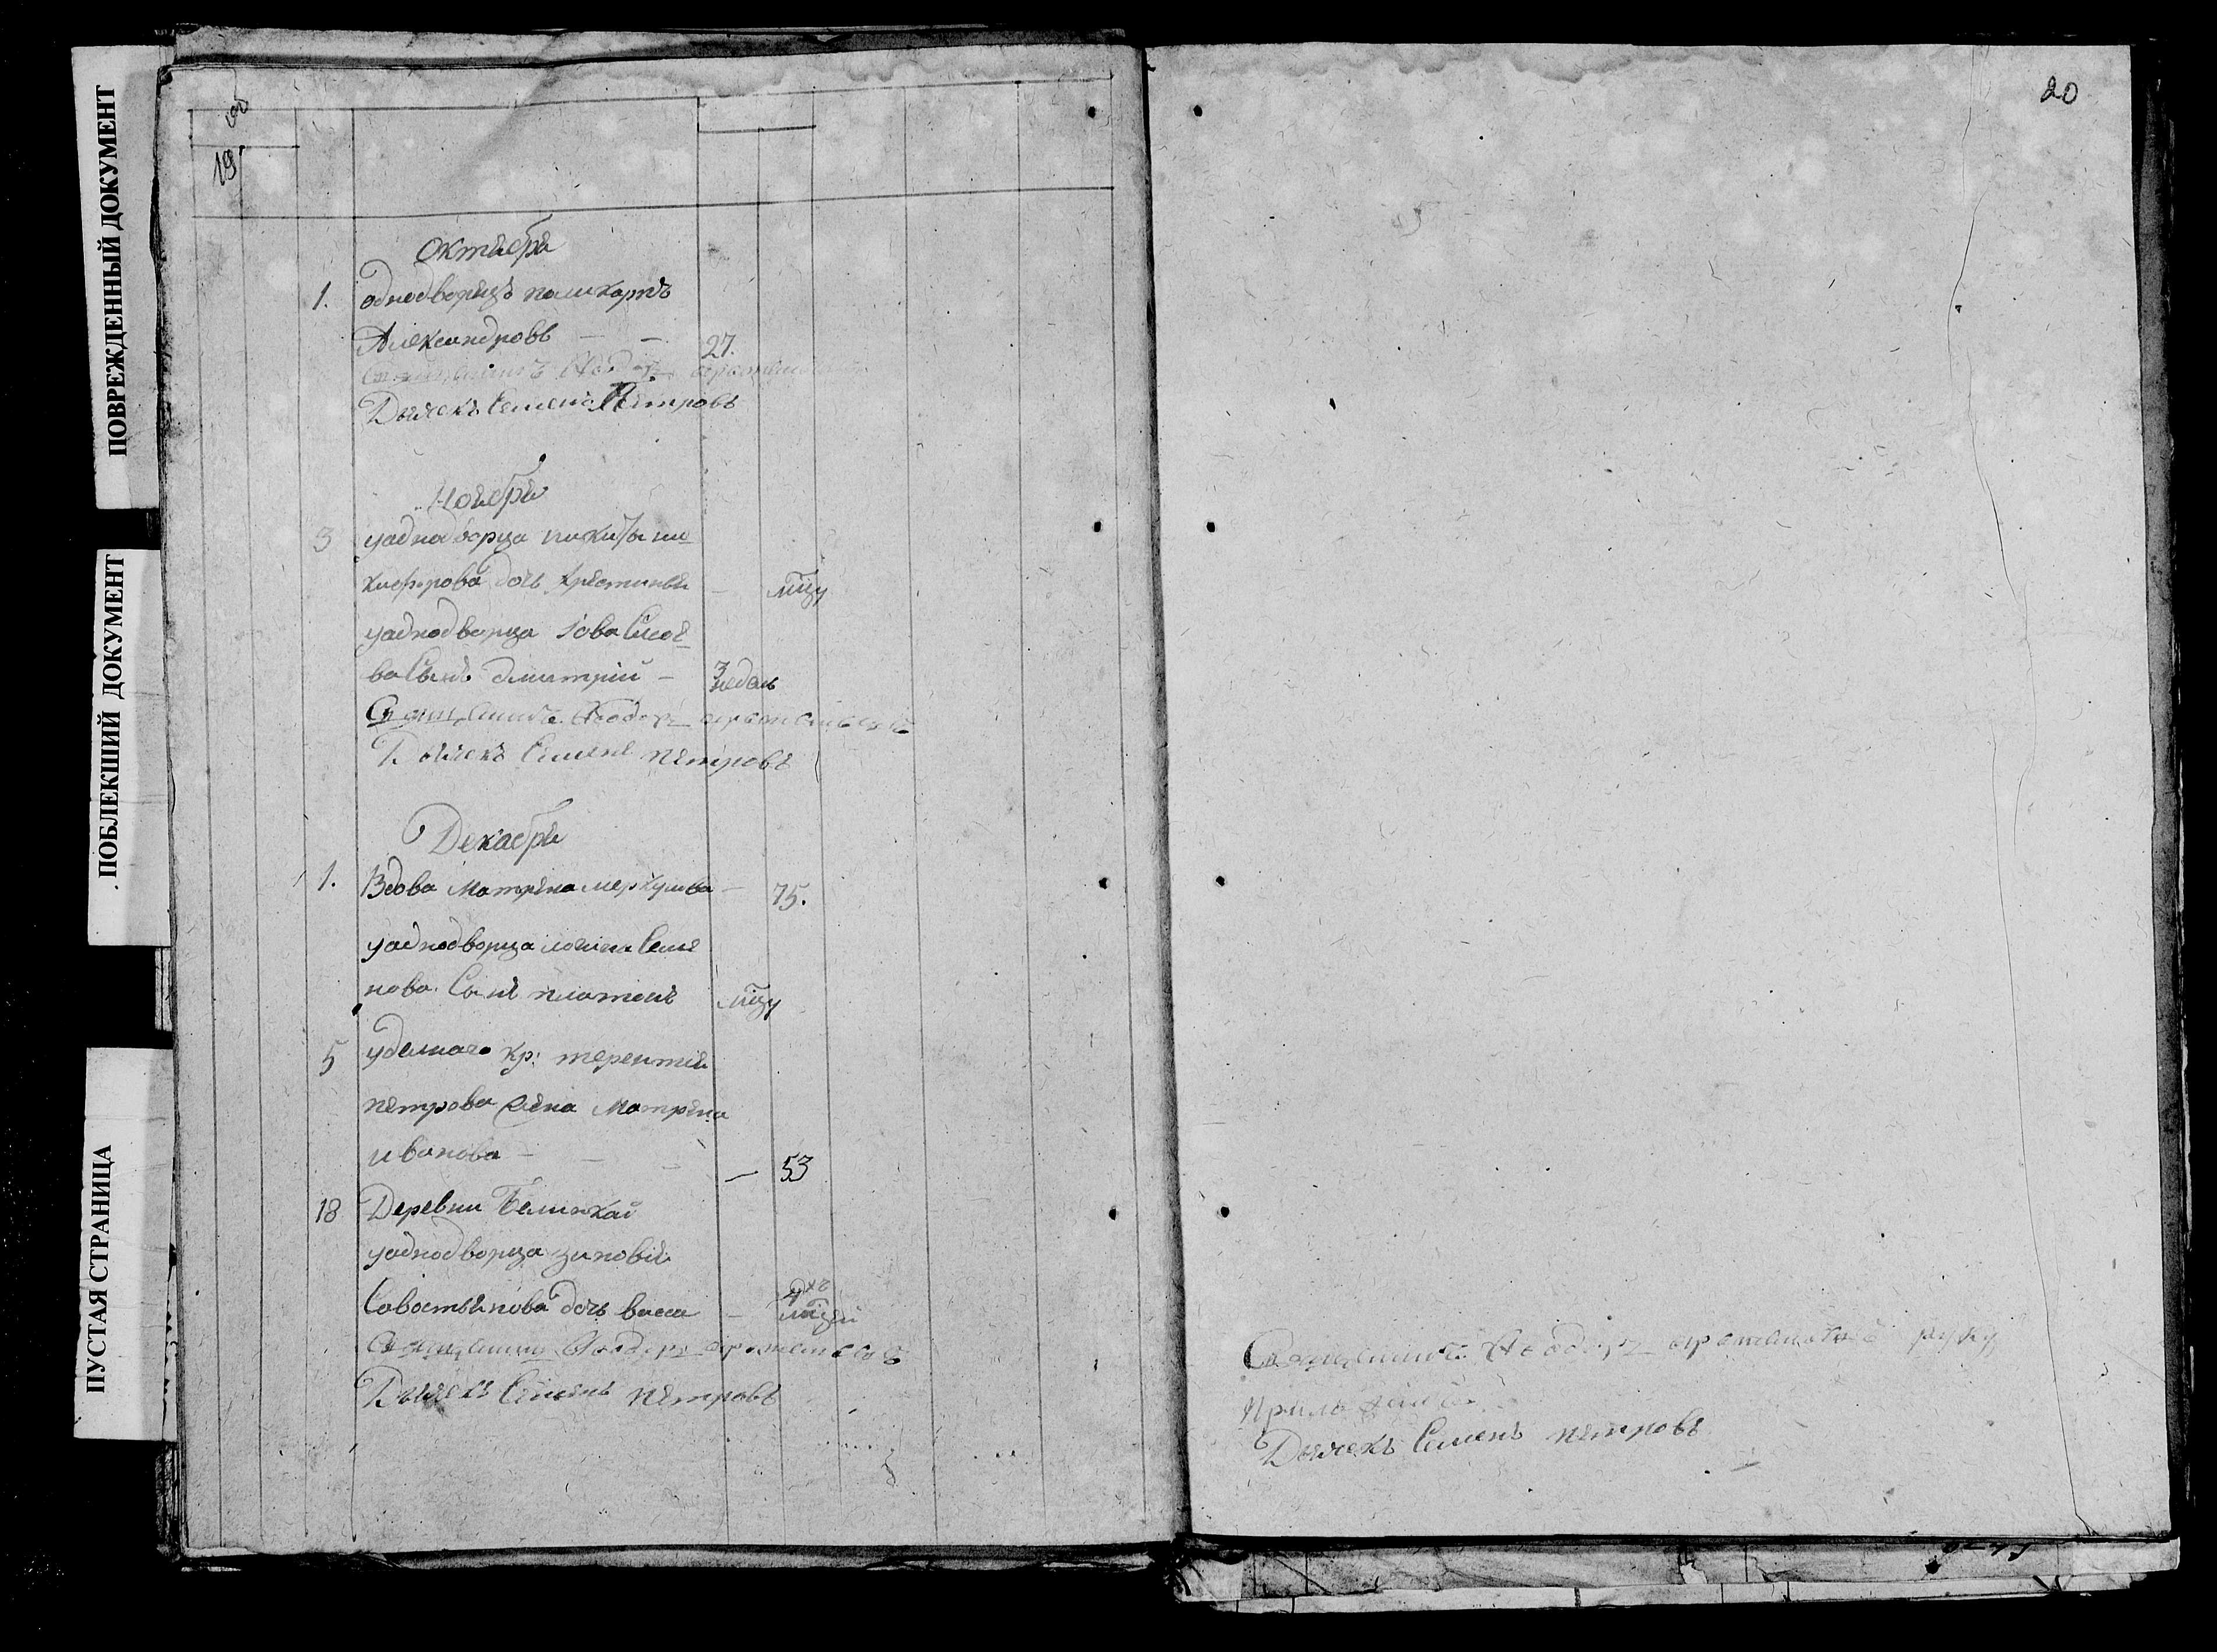 ПОВРЕЖДЕННЫЙ ДОКУМЕНТ
ПОБЛЕКШИЙ ДОКУМЕНТ
ПУСТАЯ СТРАНИЦА
об
19
Октября
1. однодворецъ поликарпъ
Александровъ — — 27.
Священникъ Феодоръ
Дьячекъ Семенъ Петровъ
Ноября
3 уаднодворца никиты ни
кифорова дочь крестинья — мцу
уаднодворца Iова Сисоѣ
ва Сынъ дмитрiй — 3 недель
Священникъ Феодоръ
Дьячекъ Семенъ петровъ
Декабря
1. Вдова Матрена меркулова — 75.
уаднодворца логина Семе
нова Сынъ платонъ мцу
5 уделнаго кр: терентия
петрова жена Матрена
иванова — — — — 53
18 Деревни
уаднодворца зиновiя
Совостьянова дочь васса — 4хъ мцей
Священникъ Феодоръ
Дьячекъ Семенъ петровъ
20
Священникъ Феодоръ руку
приложилъ
Дьячекъ Семенъ петровъ